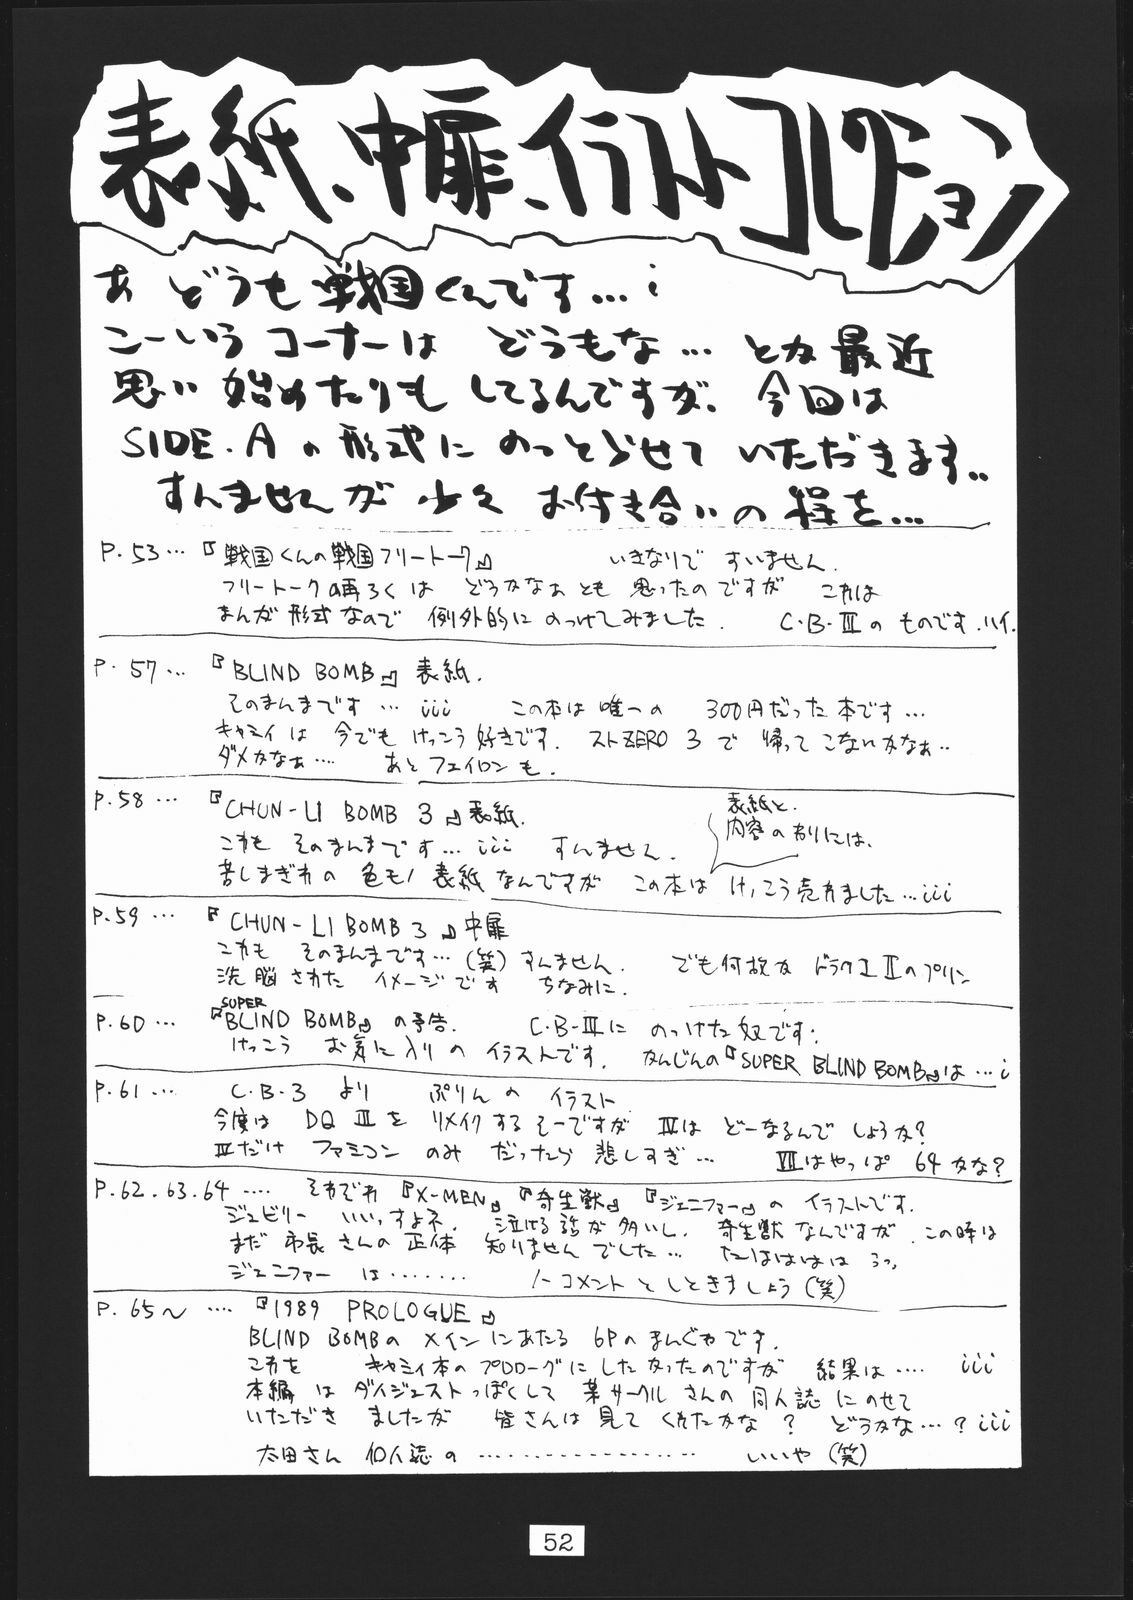 表紙、中扉、イラストコレクション
あ どうも 戦国くんです…i
こーいう コーナーは どうもな… とか 最近
思い 始めたりも してるんですが、今回は
SIDE.A の 形式に のっとらせて いただきます..
すんませんが 少々 お付き合いの 程を…
P.53… 『戦国くんの戦国フリートーク』 いきなりで すいません.
フリートークの再ろくは どうかなぁ とも 思ったのですが これは
まんが 形式 なので 例外的に のっけてみました. C・B・Ⅲの ものです.ハイ.
P.57… 『BLIND BOMB』 表紙.
そのまんまです … iii この本は 唯一の 300円だった 本です…
キャミィは 今でも けっこう 好きです. ストZERO 3 で 帰って こないかなぁ..
ダメかなぁ… あと フェイロンも.
P.58… 『CHUN-LI BOMB 3』表紙.
表紙と.
内容のわりには、
これも そのまんまです… iii すんません.
苦しまぎれの 色モノ 表紙 なんですが この本は けっこう売れました…iii
P.59… 『CHUN-LI BOMB 3』中扉
これも そのまんまです…(笑) すんません. でも何故か ドラクエ Ⅱのプリン
洗脳された イメージです ちなみに.
P.60… 『SUPER BLIND BOMB』の予告. C・B-Ⅲに のっけた奴です.
けっこう お気に入りの イラストです. かんじんの『SUPER BLIND BOMB』は…i
P.61… C・B・3 より ぷりんの イラスト
今度は DQ Ⅲを リメイクするそーですが Ⅳは どーなるんで しょうか?
Ⅳだけ ファミコン のみ だったら 悲しすぎ… Ⅶはやっぱ 64かな?
P.62.63.64 …. それぞれ 『X-MEN』『寄生獣』『ジェニファー』の イラストです.
ジュビリー いいっすよネ. 泣ける話が多いし. 寄生獣 なんですが、この時は
まだ 市長さんの 正体 知りません でした… たはははは うっ.
ジェニファー は…… ノーコメントと しときましょう (笑)
P.65〜 …. 『1989 PROLOGUE』
BLIND BOMBの メインにあたる 6Pの まんがです.
これを キャミィ本の プロローグに したかったのですが 結果は…‥ iii
本編は ダイジェストっぽくして 某サークル さんの 同人誌 にのせて
いただき ましたが 皆さんは 見て くれたかな? どうかな…?iii
太田さん 個人誌の ………………… いいや (笑)
52